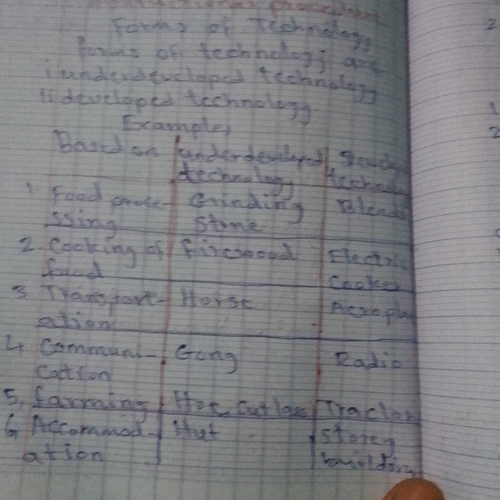 Forms of Technology
Forms of technology are
i underdeveloped technology
ii developed technology
Examples
Based on underdeveloped
technology
1 Food proce- Grinding Blende
ssing Stone
2. Cooking of firewood Electric
food Cooker
3 Transport- Horse Aeroplan
ation
4 Communi- Gong Radio
cation
5. farming Hoe, Cutlass Tractor
6 Accommod- Hut Storey
ation building